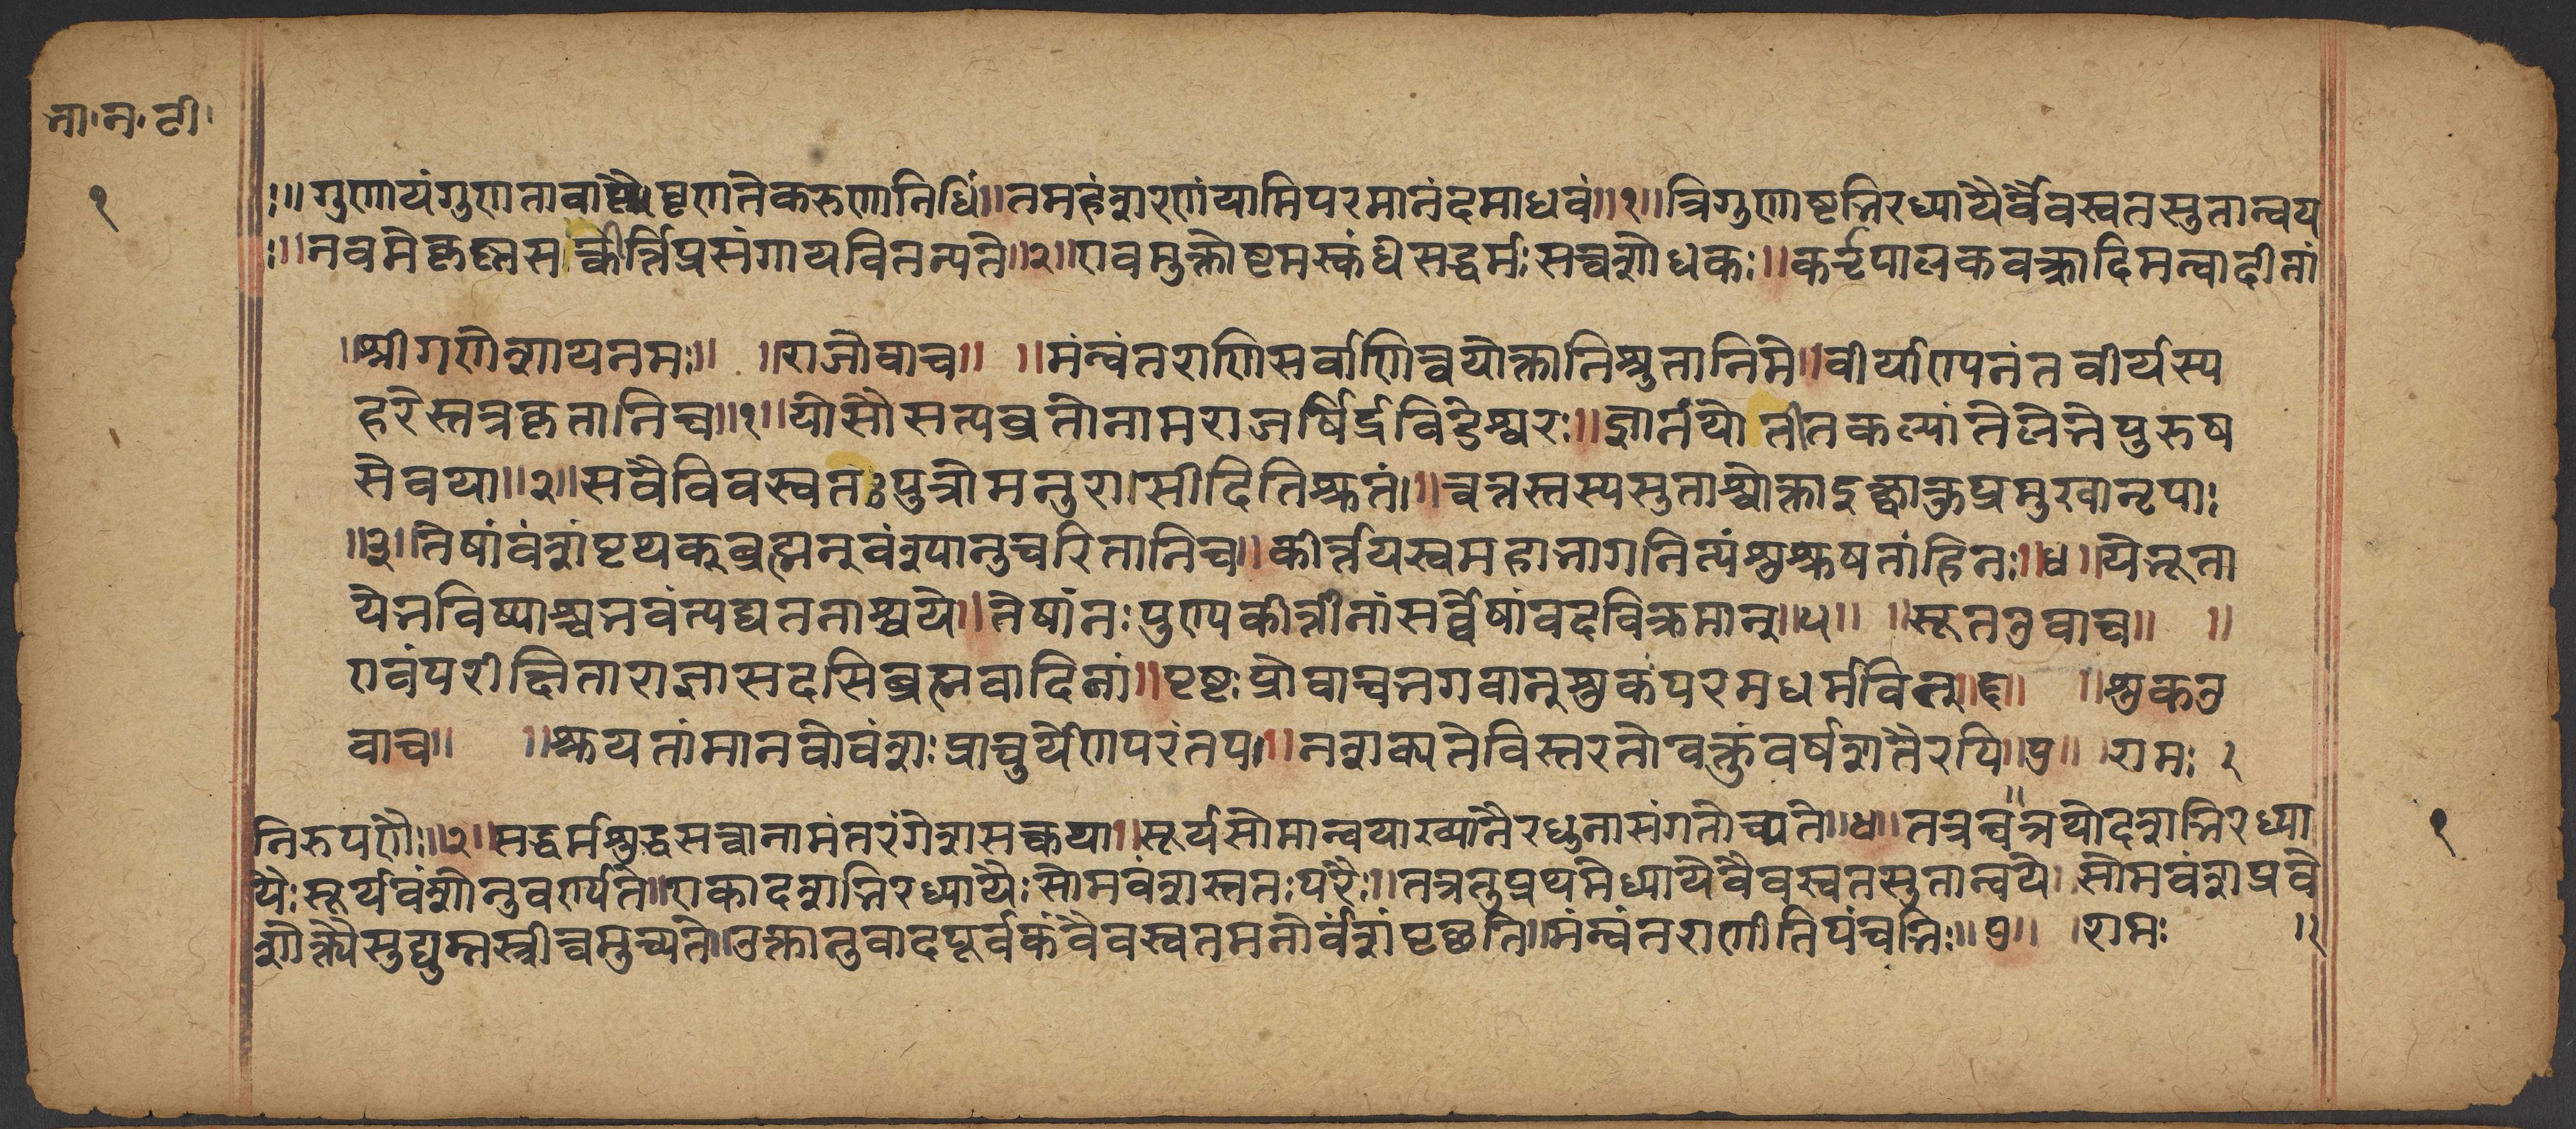 भा॰न॰टी॰
१
ः॥गुणायंगुणतावाप्त्यै।घृणतेकरुणानिधिं॥तमहंशरणंयामिपरमानंदमाधवं॥१॥त्रिगुणाष्टभिरध्यायैर्वैवस्वतसुतान्वय
ः॥नवमेकृष्णसत्कीर्त्तिप्रसंगायवितन्यते॥२॥एवमुक्तोष्टमस्कंधेसद्धर्मः सत्वशोधकः॥कर्तृपालकवक्त्रादिमन्वादीनां
॥श्रीगणेशायनमः॥ ॥राजोवाच॥ ॥मंन्वंतराणिसर्वाणित्वयोक्तानिश्रुतानिमे॥वीर्याण्यनंतवीर्यस्य
हरेस्तत्रकृतानिच॥१॥योसौसत्यव्रतोनामराजर्षिर्द्रविडेश्वरः॥ज्ञानंयोतीतकल्पांतेलेभेपुरुष
सेवया॥२॥सवैविवस्वतःपुत्रोमनुरासीदितिश्रुतं॥त्वत्तस्तस्यसुताश्चोक्ताइक्ष्वाकुप्रमुखानृपाः
॥३॥तेषांवंशंपृथक्ब्रह्मन्वंश्यानुचरितानिच॥कीर्त्तयस्वमहाभागनित्यंशुश्रूषतांहिनः॥४॥येभूता
येभविष्याश्चभवंत्यद्यतनाश्चये॥तेषांनःपुण्यकीर्त्तीनांसर्वेषांवदविक्रमान्॥५॥ ॥सूतउवाच॥ ॥
एवंपरीक्षिताराज्ञासदसिब्रह्मवादिनां॥पृष्टःप्रोवाचभगवान्शुकःपरमधर्मवित्॥६॥ ॥शुकउ
वाच॥ ॥श्रूयतांमानवोवंशःप्राचुर्येणपरंतप॥नशक्यतेविस्तरतोवक्तुंवर्षशतैरपि॥७॥ ॥रामः १
निरुपणैः॥३॥सद्धर्मशुद्धसत्वानामंतरंगेशसत्कथा॥सूर्यसोमान्वयाख्यानैरधुनासंगतोच्यते॥४॥तत्रत्वत्रयोदशभिरध्या
यैःसूर्यवंशोनुवर्ण्यते॥एकादशभिरध्यायैःसोमवंशस्ततःपरैः॥तत्रतुप्रथमेध्यायेवैवस्वतसुतान्वये।सोमवंशप्रवे
शोक्त्यैसुद्युम्नस्त्रीत्वमुच्यते॥उक्तानुवादपूर्वकंवैवस्वतमनोर्वंशंपृच्छति॥मंन्वंतराणीतिपंचभिः॥७॥ ॥रामः ॥१
१